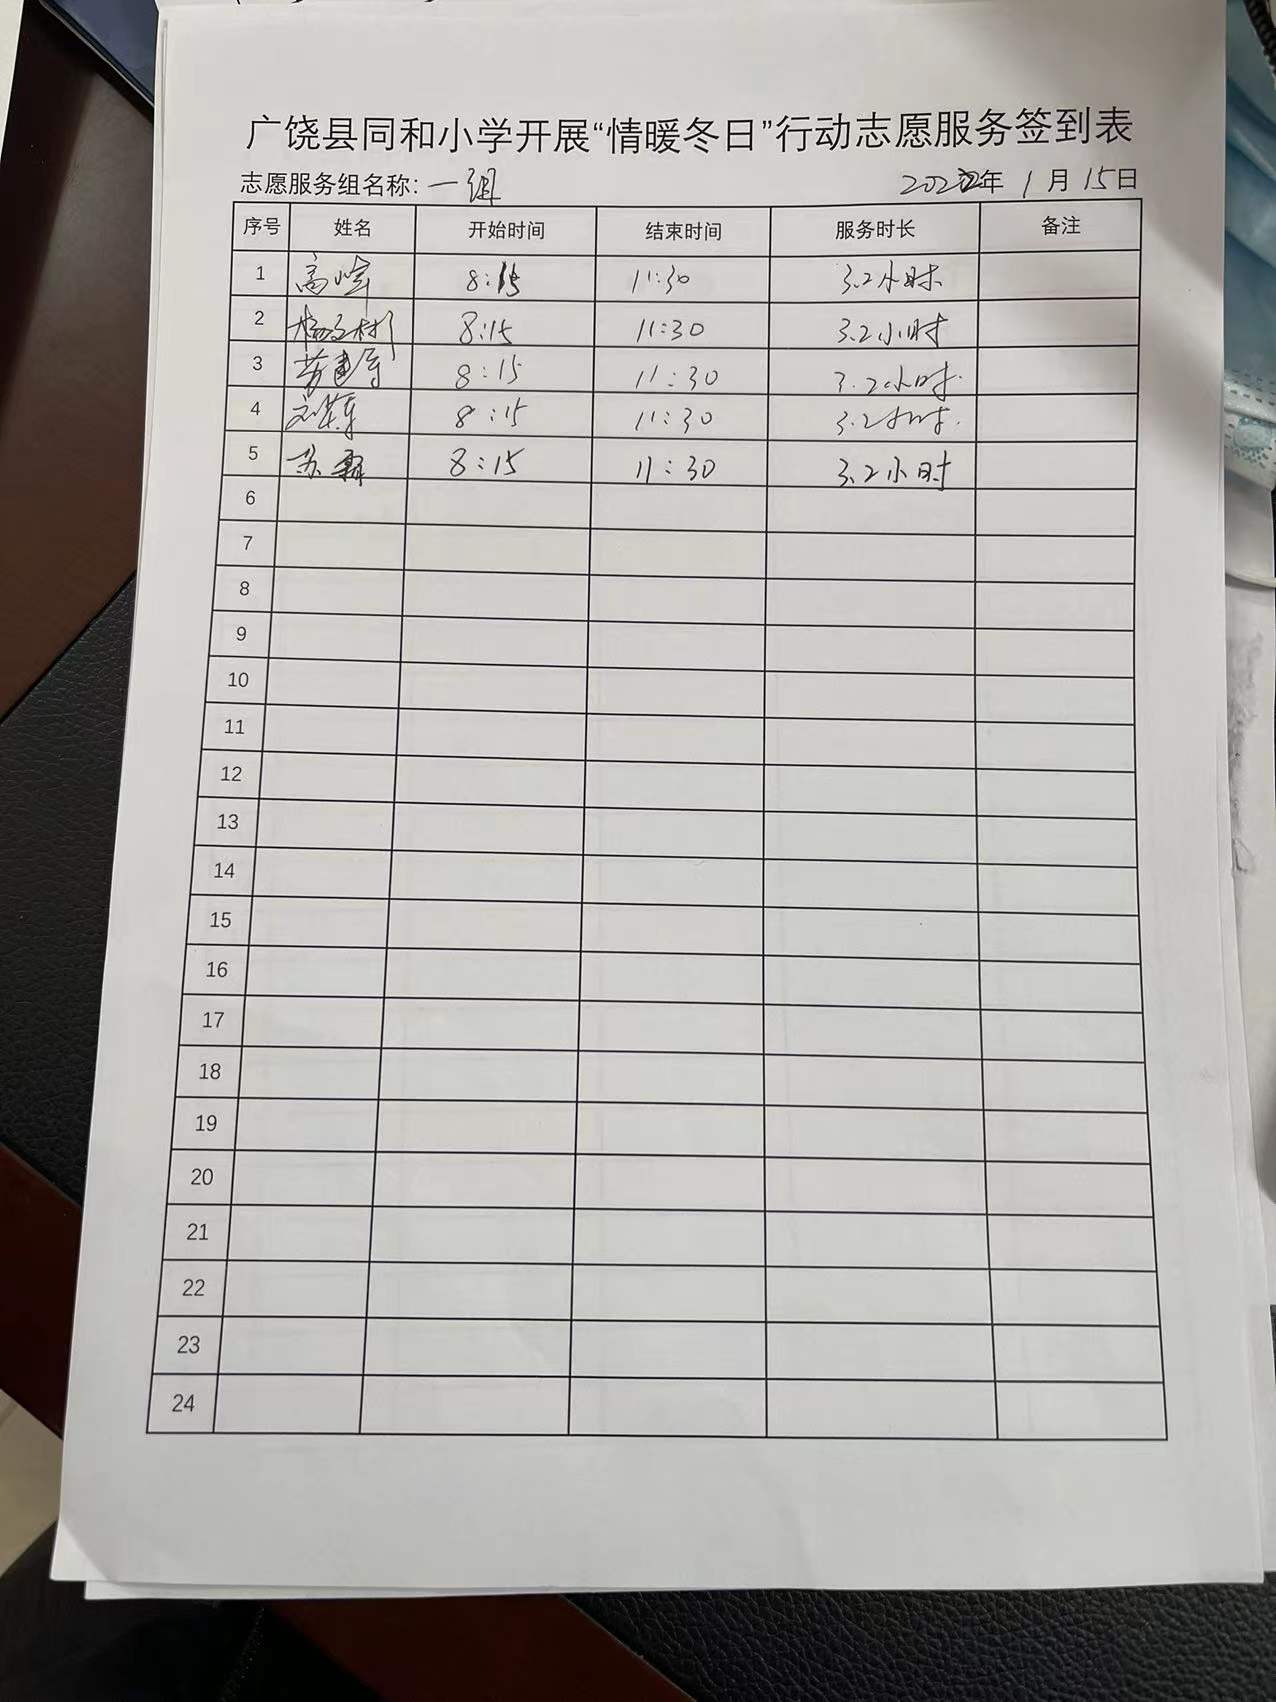 广饶县同和小学开展“情暖冬日”行动志愿服务签到表
志愿服务组名称：一组 2022年 1月 15日
序号 姓名 开始时间 结束时间 服务时长 备注
1 高峰 8:15 11:30 3.2小时
2 8:15 11:30 3.2小时
3 8:15 11:30 3.2小时.
4 8:15 11:30 3.2小时.
5 苏霖 8:15 11:30 3.2小时
6
7
8
9
10
11
12
13
14
15
16
17
18
19
20
21
22
23
24